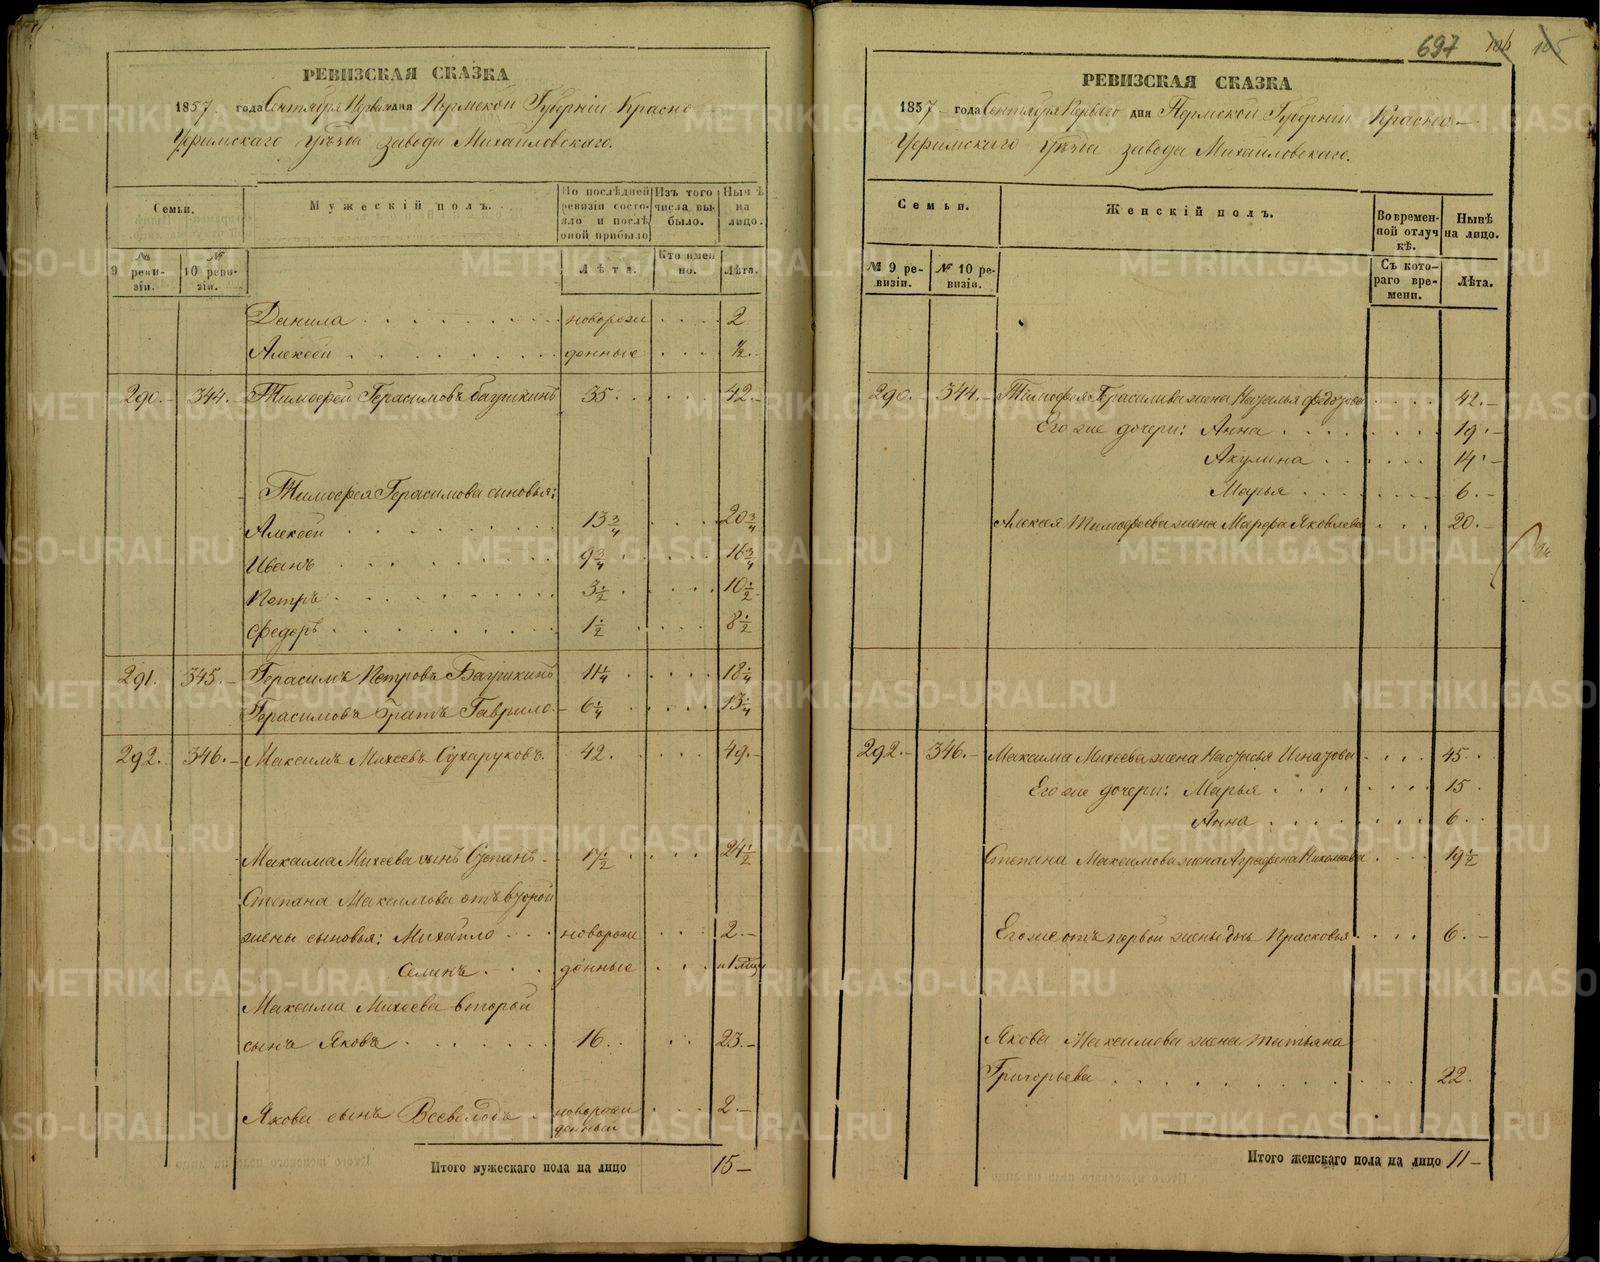 РЕВИЗСКАЯ СКАЗКА
1857 года Сентября Перваго дня Пермской Губерніи Красно-
Уфимскаго Уѣзда завода Михайловскаго.
Семьи.
Мужескій полъ.
По послѣдней ревизіи состояло и послѣ оной прибыло
Изъ того числа выбыло.
Нынѣ на лицо.
№ 9 ревизіи.
№ 10 ревизіи.
Лѣта.
Кто именно.
Лѣта.
Данила новорож 2
Алексей денные ½
290. 344. Тимофей Герасимовъ Батушкинъ 35. 42.
Тимофея Герасимова сыновья:
Алексей 13 3/4 20 3/4
Иванъ 9 3/4 16 3/4
Петръ 3 1/2 10 1/2
Федоръ 1 1/2 8 1/2
291. 345. Герасимъ Петровъ Батушкинъ 11 1/4 18 1/4
Герасимовъ братъ Гаврило 6 1/4 13 1/4
292. 346. Максимъ Михеевъ Сухаруковъ. 42. 49.
Максима Михеева сынъ Степанъ 17 1/2 24 1/2
Степана Максимова отъ второй
жены сыновья: Михайло новорож 2
Семенъ денные
Максима Михеева второй
сынъ Яковъ 16. 23.
Якова сынъ Всеволодъ новорожденный 2
Итого мужескаго пола на лицо 15
697
105
РЕВИЗСКАЯ СКАЗКА
1857 года Сентября Перваго дня Пермской Губерніи Красно-
Уфимскаго Уѣзда завода Михайловскаго.
Семьи.
Женскій полъ.
Во временной отлучкѣ.
Нынѣ на лицо.
№ 9 ревизіи.
№ 10 ревизіи.
Съ котораго времени.
Лѣта.
290. 344. Тимофея Герасимова жена Наталья Федотова 42.
Его же дочери: Анна 19.
Акулина 14.
Марья 6.
Алексея Тимофеева жена Марфа Яковлева 20.
292. 346. Максима Михеева жена Настасья Игнатова 45
Его же дочери: Марья 15.
Анна 6
Степана Максимова жена Аграфена Николаева 19 1/2
Его же отъ первой жены дочь Прасковья 6.
Якова Максимова жена Татьяна
Григорьева 22.
Итого женскаго пола на лицо 11
METRIKI.GASO-URAL.RU